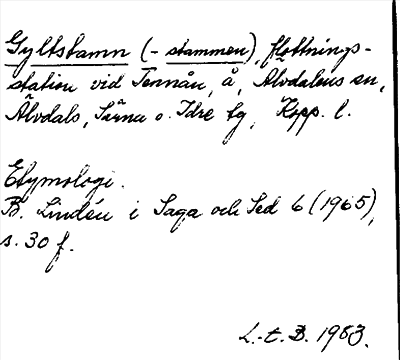 Gyltstamn (-stammen), flottnings-
station vid Tennån, å, Älvdalens sn,
Älvdals, Särna o. Idre tg, Kopp. l.
Etymologi.
B. Lindén i Saga och Sed 6 (1965),
s. 30 f.
L.-t. B. 1983.